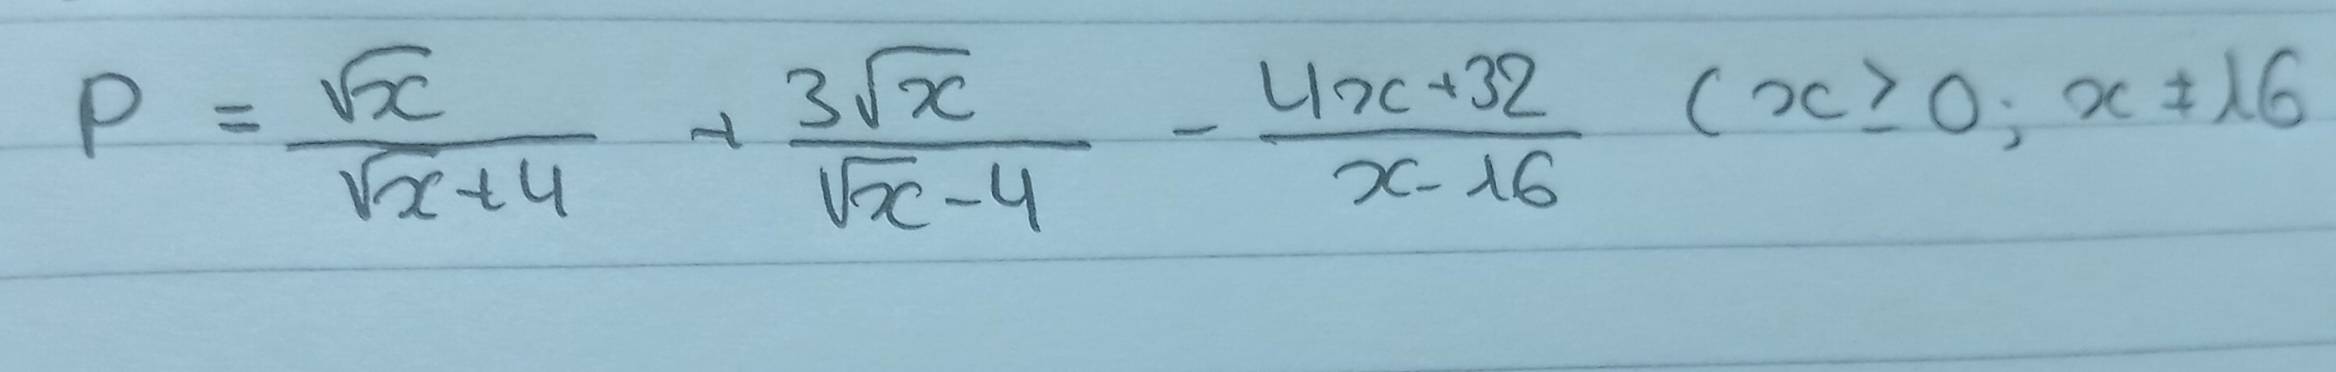 P = \frac{\sqrt{x}}{\sqrt{x}+4} + \frac{3\sqrt{x}}{\sqrt{x}-4} - \frac{4x+32}{x-16} (x ≥ 0; x ≠ 16